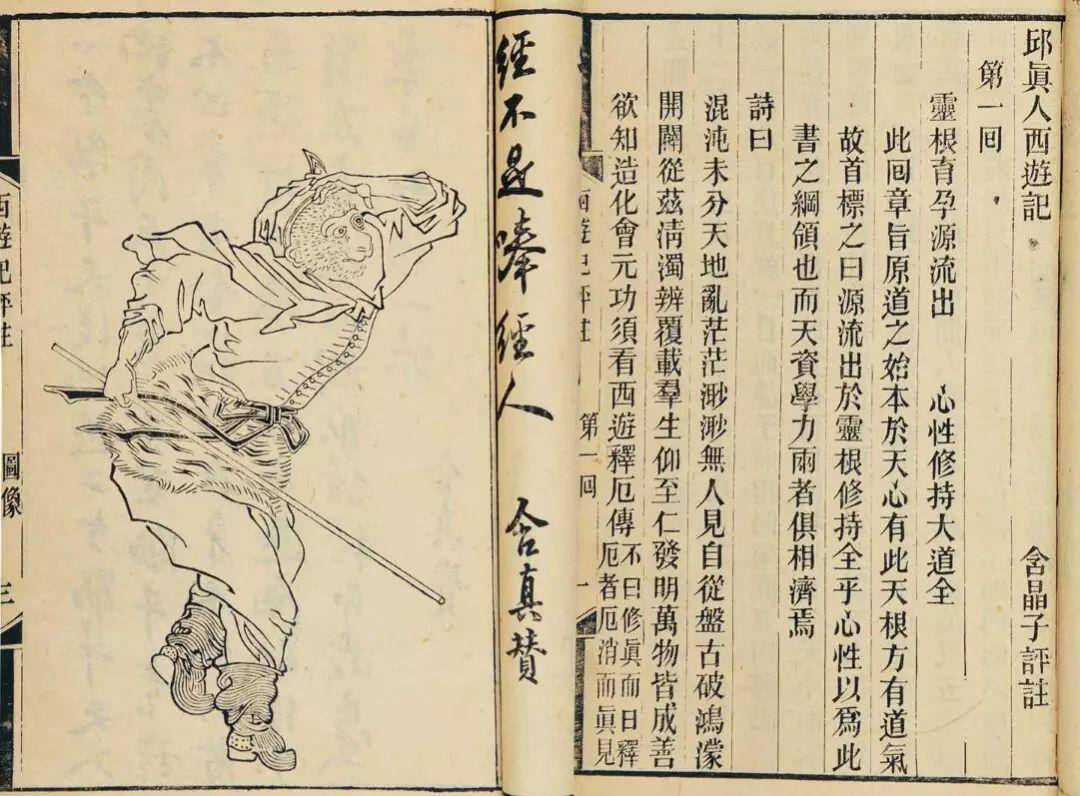 邱眞人西遊記
含晶子評註
第一回
靈根育孕源流出　心性修持大道全
此回章旨原道之始本於天心有此天根方有道氣
故首標之曰源流出於靈根修持全乎心性以爲此
書之綱領也而天資學力兩者俱相濟焉
詩曰
混沌未分天地亂茫茫渺渺無人見自從盤古破鴻濛
開闢從茲淸濁辨覆載羣生仰至仁發明萬物皆成善
欲知造化會元功須看西遊釋厄傳
不曰修眞而曰釋
厄者厄消而眞見
西遊記評註
第一回
一
經不是
經人
含真贊
西遊記評註
圖像
三